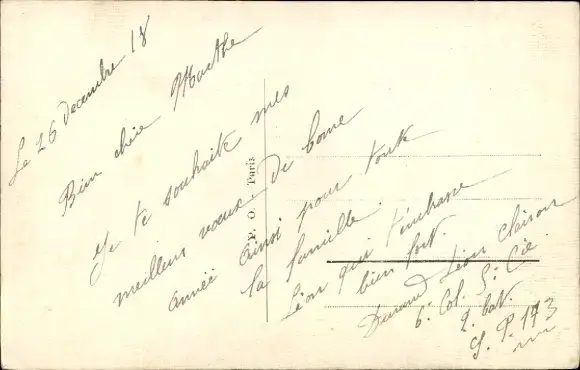 Le 26 Decembre 18
Bien chère Marthe
Je te souhaite mes
meilleurs vœux de bonne
année ainsi pour toute
la famille.
Léon qui t'embrasse
bien fort.
Durand Léon clairon
6e Col. 5e Cie
2. bat.
S. P. 173
P. O. Paris